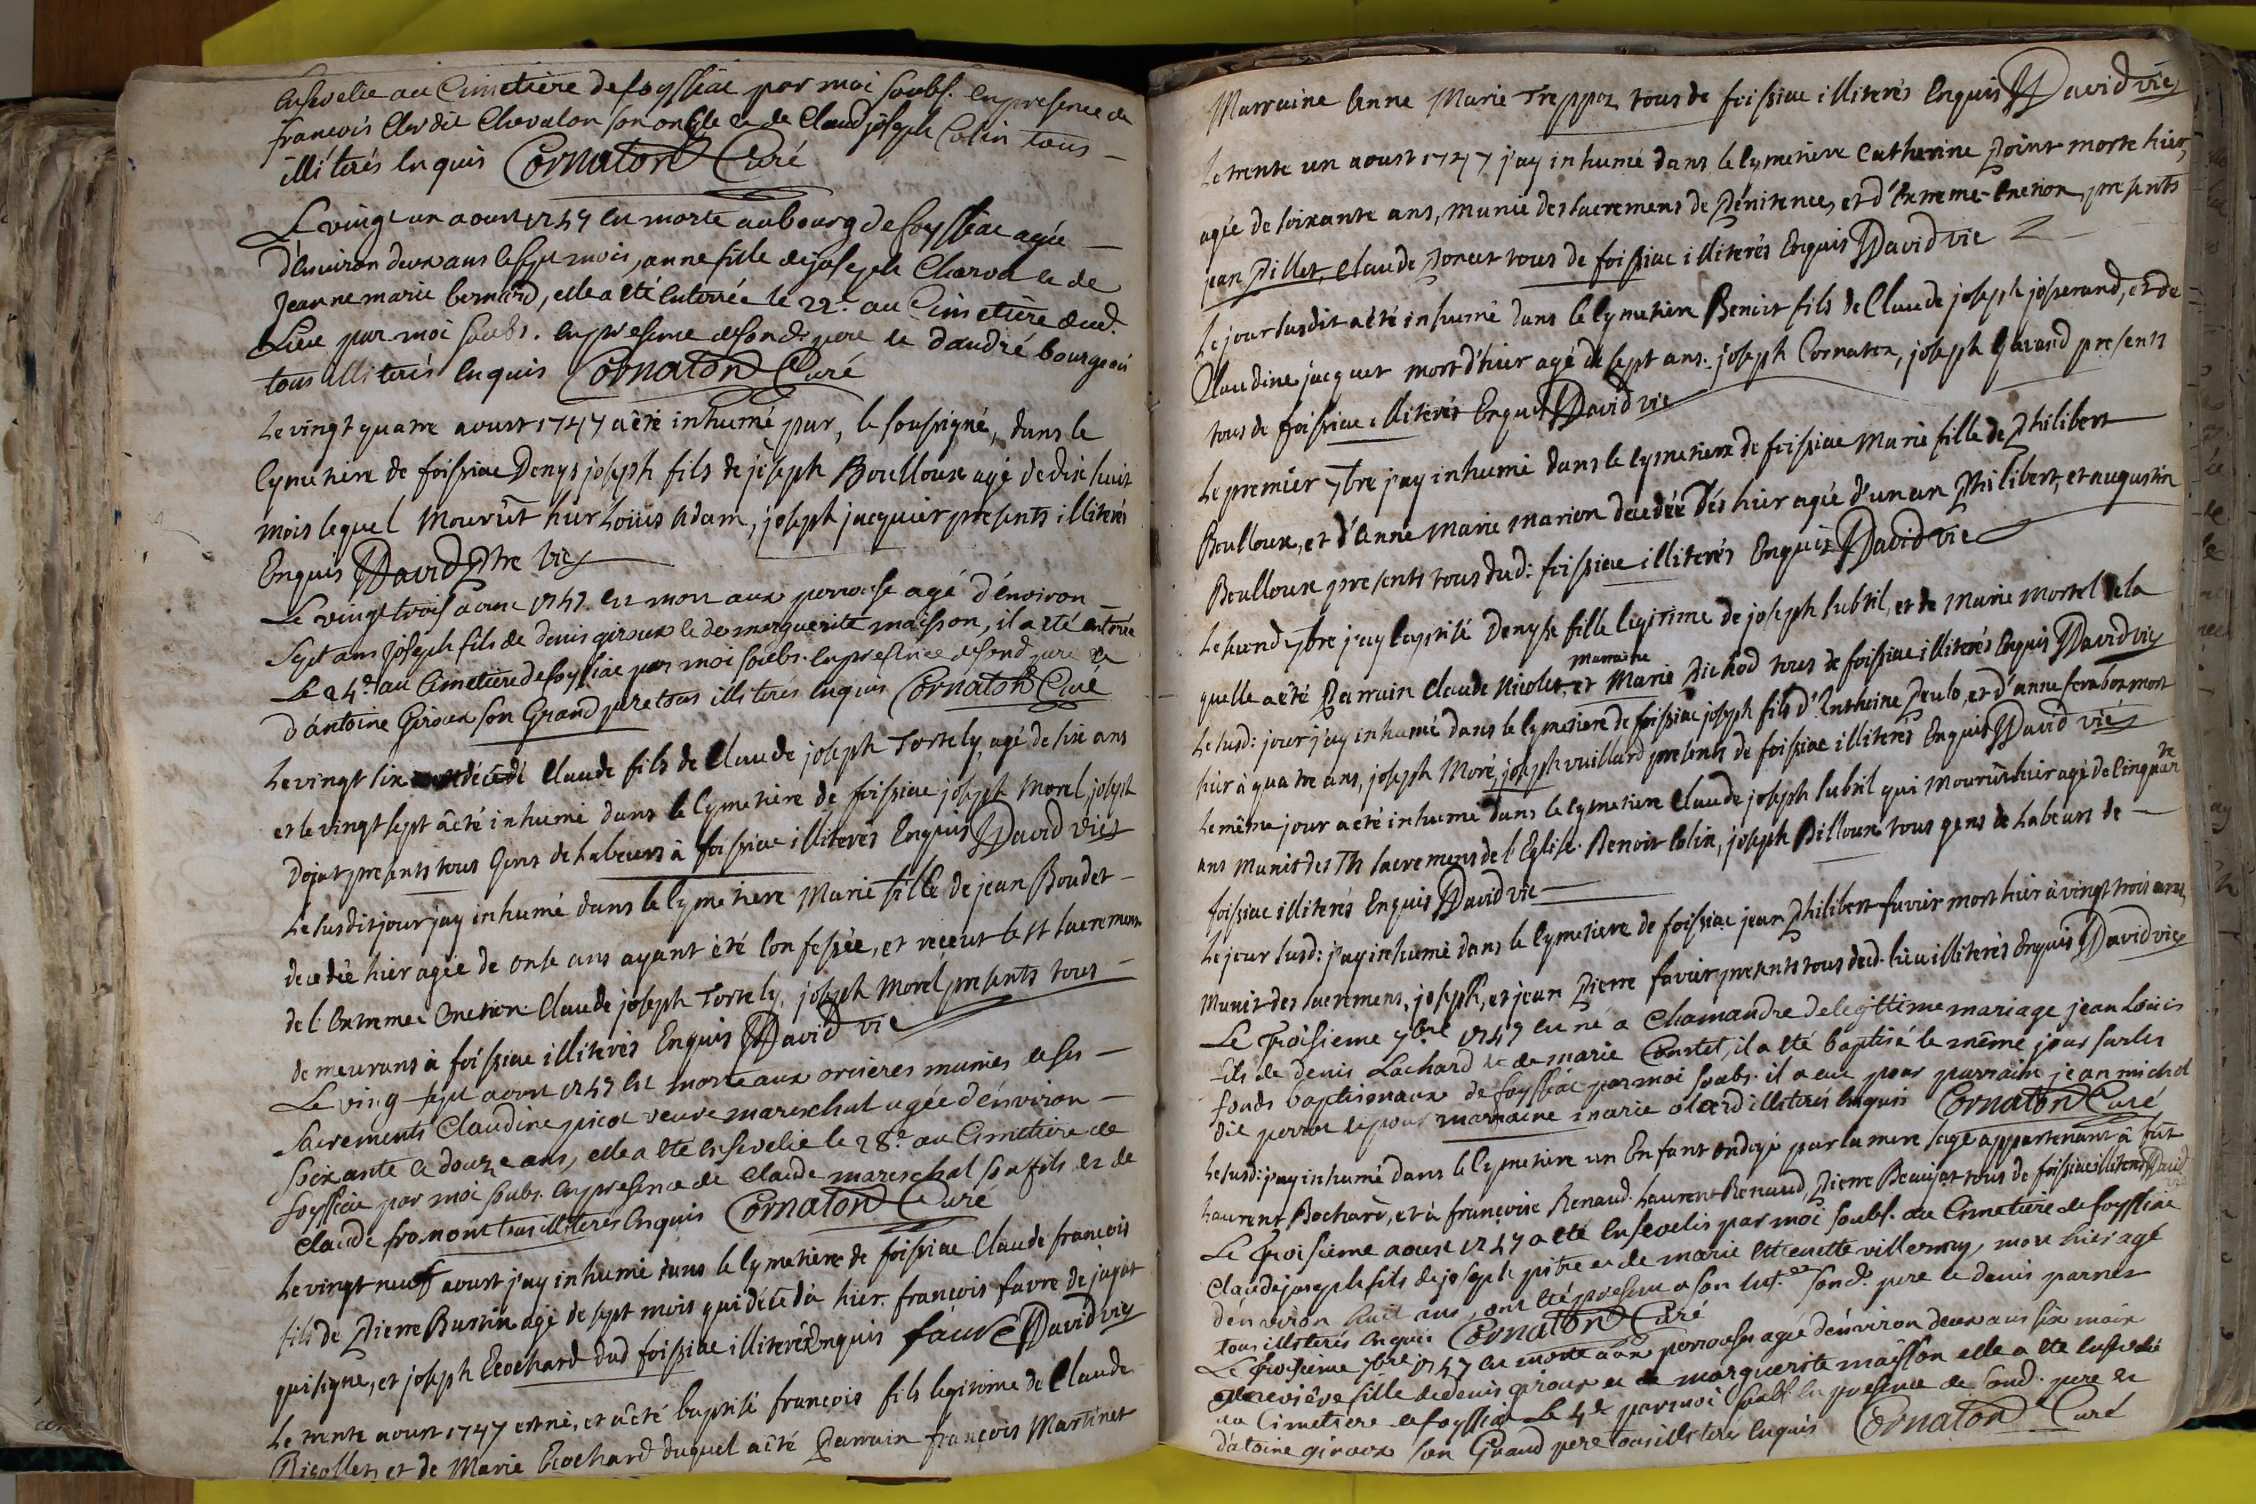 Ensevelie au Cimetière de foyssiac par moi soubs. en presence de
françois Clerdit Chevalon son oncle et de Claud joseph Colin tous
illiterés Enquis Cornaton Curé
Le vingt un aoust 1747 est morte au bourg de foyssiac agée
d'environ deux ans et sept mois, anne fille de joseph Charva et de
Jeanne marie bernard, elle a eté enterrée le 22e. au Cimetière dud.
Lieu par moi soubs. en presence de sond. pere et d'andré bourgeois
tous illiterés Enquis Cornaton Curé
Le vingt quatre aoust 1747 a été inhumé par, le soussigné, dans le
Cymetiere de foissiac Denys joseph fils de joseph Boulloux agé de dix huit
mois lequel mourût hier Loüis Adam, joseph jacquier presents illiterés
Enquis David Ptre Vic
Le vingt trois aoust 1747 est mort aux perrouse agé d'environ
Sept ans joseph fils de denis giroux et de marguerite maisson, il a eté enterré
Le 24e. au Cimetière de foyssiac par moi soubs. en presence de sond. pere et
d'antoine Giroux son Grand pere tous illiterés enquis Cornaton Curé
Le vingt six décédé Claude fils de Claude joseph Tortely, agé de six ans
et le vingt sept a été inhumé dans le Cymetiere de foissiac joseph Morel, joseph
Dojat presents tous Gens de Labeurs à foissiac illiterés Enquis David Vic
Le susdit jour j'ay inhumé dans le Cymetiere Marie fille de jean Boudet
decedée hier agée de onse ans ayant été Confessée, et receut le st sacrement
de l'Extreme Onction Claude joseph Tortely, joseph Morel presents tous
demeurans à foissiac illiterés Enquis David vic
Le ving sept aoust 1747 est morte aux orcieres munies de ses
sacrements Claudine picot veuve mareschal agée d'environ
soixante et douze ans, elle a eté ensevelie le 28e. au Cimetiere de
foyssiac par moi soubs. en presence de Claude mareschal son fils et de
Claude fromont tous illiterés Enquis Cornaton Curé
Le vingt neuf aoust j'ay inhumé dans le Cymetiere de foissiac Claude françois
fils de Pierre Burtin agé de sept mois qui décéda hier. françois favre de jayat
qui signe, et joseph Ecochard dud foissiac illiteré Enquis favre David vic
Le trente aoust 1747 est né, et a été baptisé françois fils legitime de Claude
Rigollet, et de Marie Ecochard duquel a été Parrain françois Martinet
Marraine Anne Marie Treppoz tous de foissiac illiterés Enquis David vic
Le trente un aoust 1747 j'ay inhumé dans le Cymetiere Catherine Point morte hier,
agée de soixante ans, munie des sacremens de Penitence, et d'Extreme-Onction, presents
jean Pillet, Claude Poncet tous de foissiac illiterés Enquis David vic
Le jour susdit a été inhumé dans le Cymetiere Benoit fils de Claude joseph josserand, et de
Claudine jacquet mort d'hier agé de sept ans. joseph Cornaton, joseph Gavand presents
tous de foissiac illiterés Enquis David vic
Le premier 7bre j'ay inhumé dans le Cymetiere de foissiac Marie fille de Philibert
Boulloux, et d'Anne Marie Marion decedée dés hier agée d'un an Philibert, et augustin
Boulloux presents tous dud: foissiac illiterés Enquis David vic
Le second 7bre j'ay baptisé Denyse fille legitime de joseph Subtil, et de Marie Mortel la
quelle a été Parrain Claude Nicolet, et marraine Marie Pichod tous de foissiac illiterés Enquis David vic
Le susd: jour j'ay inhumé dans le Cymetiere de foissiac joseph fils d'Anthoine Peulo, et d'anne mort
hier à quatre ans, joseph Moré, joseph vuillard presents de foissiac illiterés Enquis David vic
Le même jour a été inhumé dans le Cymetiere Claude joseph Subtil qui mourût hier agé de Cinquante
ans Munit des sacremens de l'Eglise. Benoit Colin, joseph Billoux tous gens de Labeurs de
foissiac illiterés Enquis David vic
Le jour susd: j'ay inhumé dans le Cymetiere de foissiac jean Philibert favier mort hier à vingt trois ans,
Munit des sacremens, joseph, et jean Pierre favier presents tous dud. lieu illiterés Enquis David vic
Le troisieme 7bre 1747 est né a Chamandre de legitime mariage jean Louis
fils de denis Lachard et de marie Constet, il a eté baptisé le même jour sur les
fonds baptismaux de foyssiac par moi soubs. il a eu pour parrain jean michel
dit perrot et pour marraine marie olard illiterés enquis Cornaton Curé
Le susd: j'ay inhumé dans le Cymetiere un Enfant ondoyé par la mere sage appartenant à fût
Laurent Bochard, et à françoise Renaud. Laurent Renaud, Pierre Beaujat tous de foissiac illiterés David vic
Le troisieme aoust 1747 a eté ensevelis par moi soubs. au Cimetiere de foyssiac
Claude joseph fils de joseph pitre et de marie Ettienette villermoy, mort hier agé
d'environ huit ans, ont eté present a son sond. pere et denis parnet
tous illiterés enquis Cornaton Curé
Le troisieme 7bre 1747 est morte aux perrouse agée d'environ deux ans six mois
Genevieve fille de denis giroux et de marguerite maisson elle a eté ensevelie
au Cimetiere de foyssiac Le 4e. par moi soubs. en presence de sond. pere et
d'atoine giroux son Grand pere tous illiterés enquis Cornaton Curé